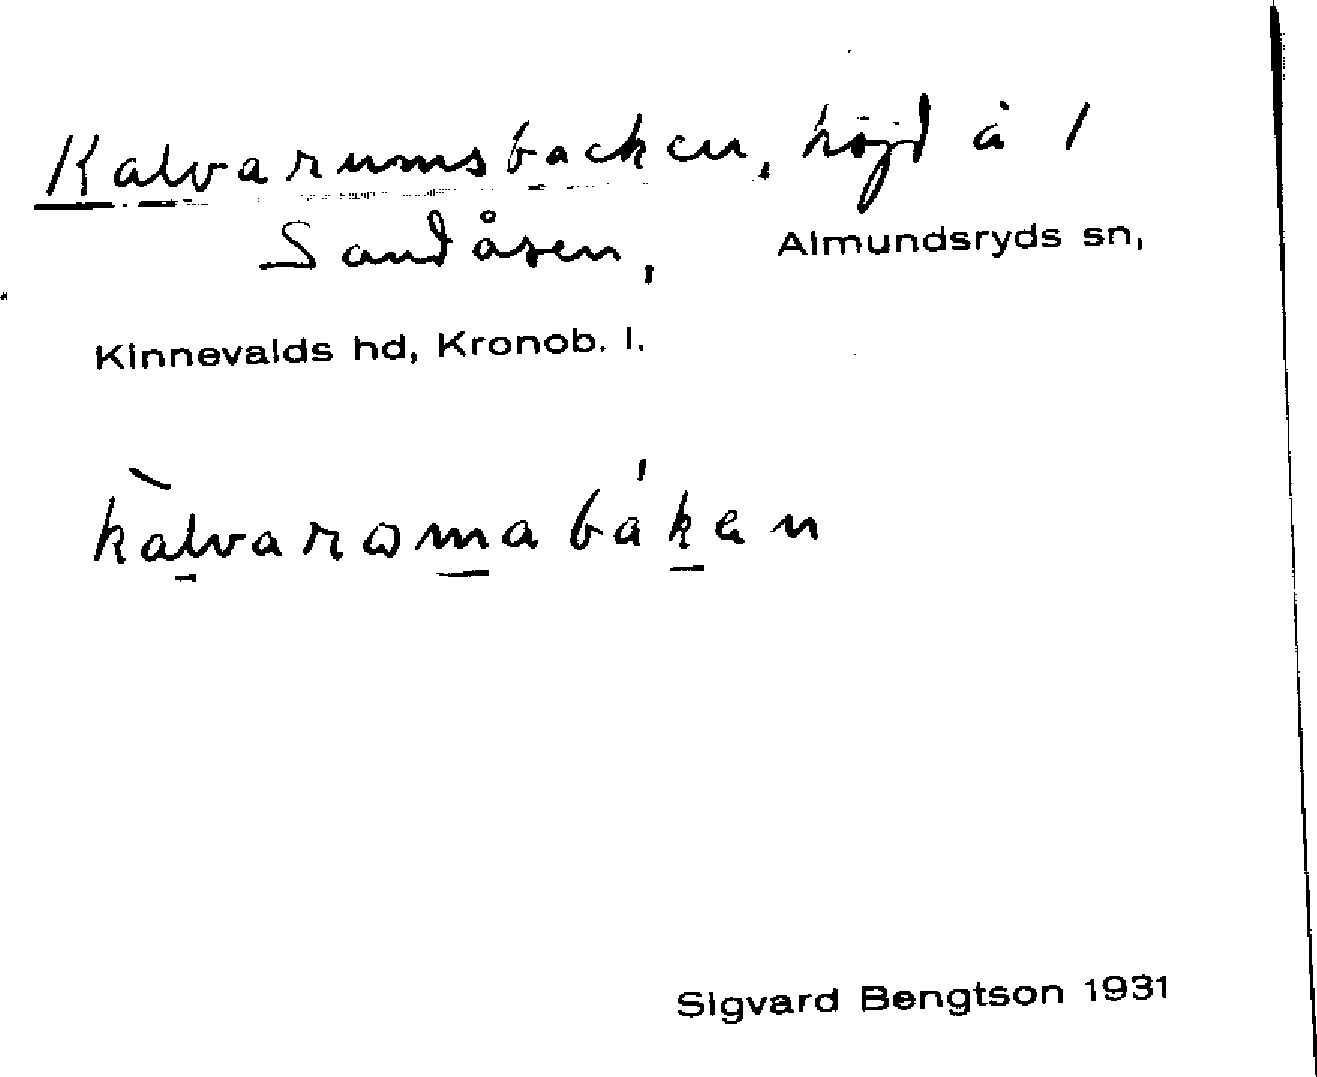 Kalvarumsbacken, höjd å /
Sandåsen, Almundsryds sn,
Kinnevalds hd, Kronob. l.
kàlvarωmabákan
Sigvard Bengtson 1931